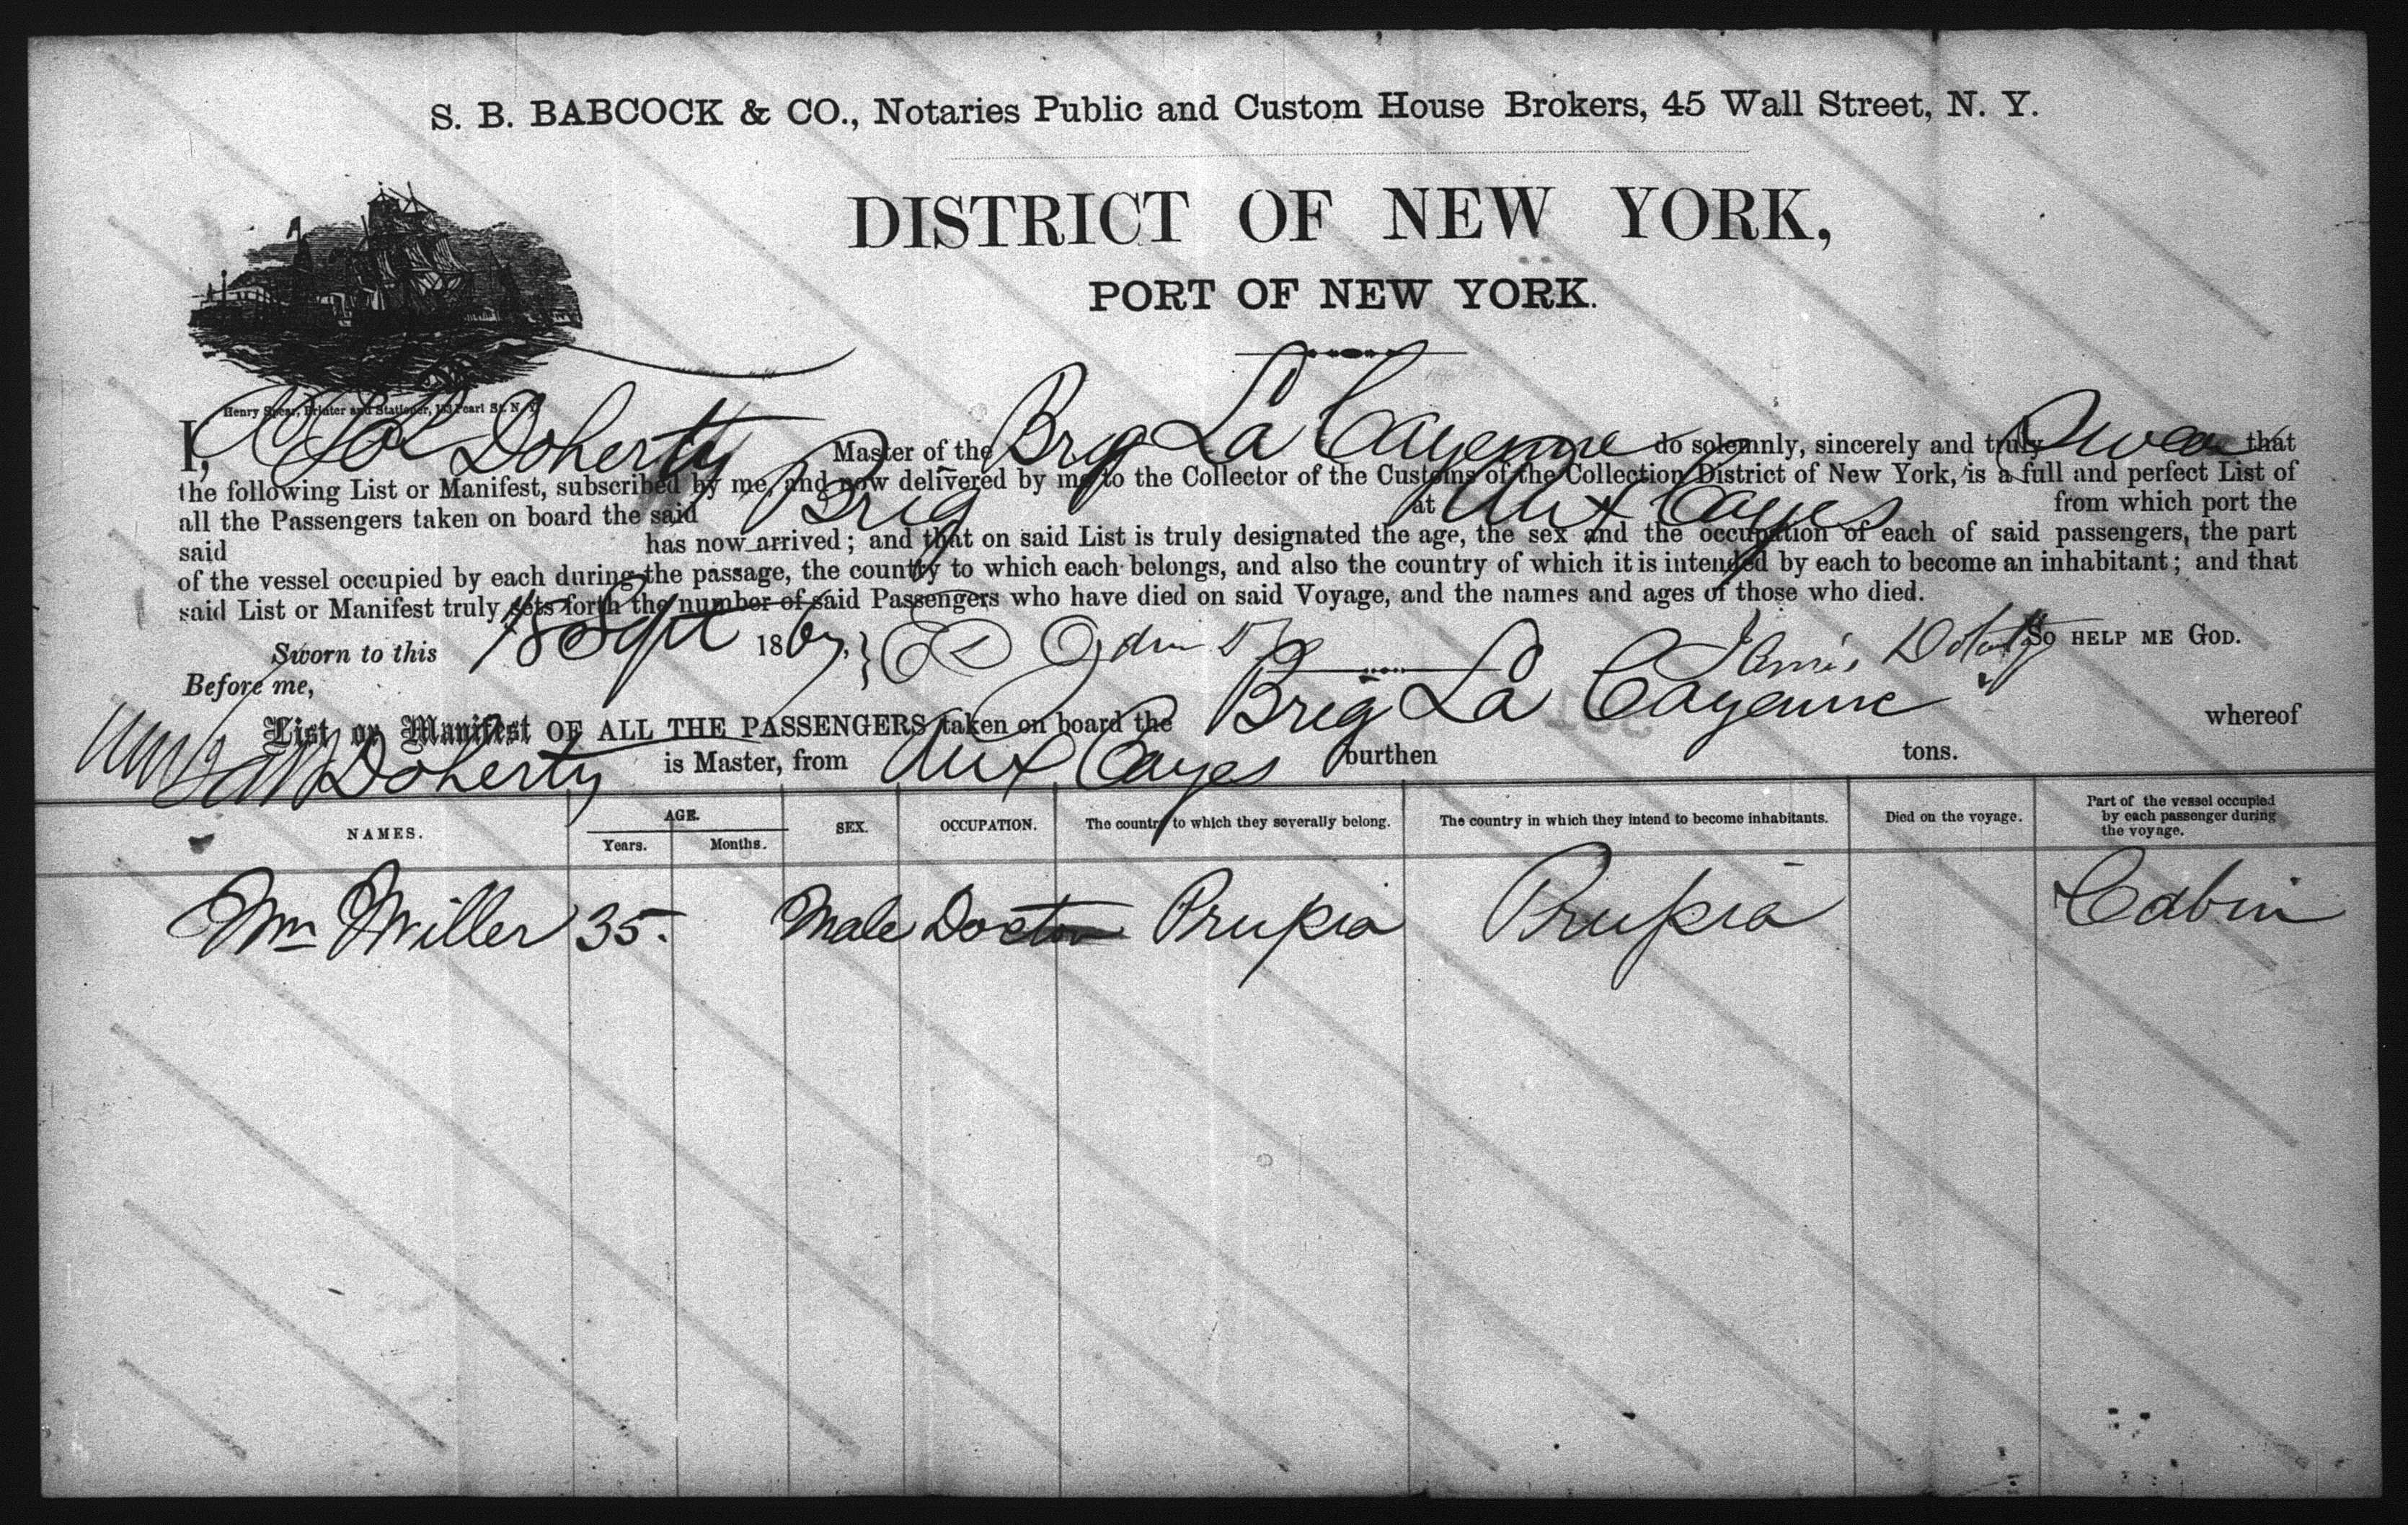 S. B. BABCOCK & CO., Notaries Public and Custom House Brokers, 45 Wall Street, N. Y.
DISTRICT OF NEW YORK,
PORT OF NEW YORK.
Henry Spear, Printer and Stationer, Pearl St. N. Y.
I, Doherty Master of the Brig La Cayenne do solemnly, sincerely and truly Swear that
the following List or Manifest, subscribed by me, and now delivered by me to the Collector of the Customs of the Collection District of New York, is a full and perfect List of
all the Passengers taken on board the said Brig at Aux Cayes from which port the
said has now arrived; and that on said List is truly designated the age, the sex and the occupation of each of said passengers, the part
of the vessel occupied by each during the passage, the country to which each belongs, and also the country of which it is intended by each to become an inhabitant; and that
said List or Manifest truly sets forth the number of said Passengers who have died on said Voyage, and the names and ages of those who died.
Sworn to this 18 Sept 1867, } Doherty So HELP ME GOD.
Before me,
List or Manifest OF ALL THE PASSENGERS taken on board the Brig La Cayenne whereof
Doherty is Master, from Aux Cayes burthen tons.
NAMES. AGE. Years. Months. SEX. OCCUPATION. The country to which they severally belong. The country in which they intend to become inhabitants. Died on the voyage. Part of the vessel occupied by each passenger during the voyage.
Wm Miller 35. Male Doctor Prussia Prussia Cabin